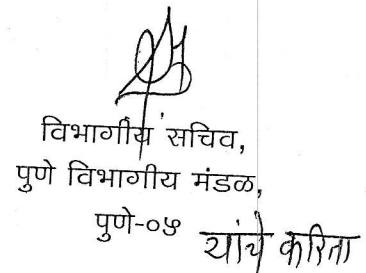 विभागीय सचिव,
पुणे विभागीय मंडळ,
पुणे-०५ यांचे करिता